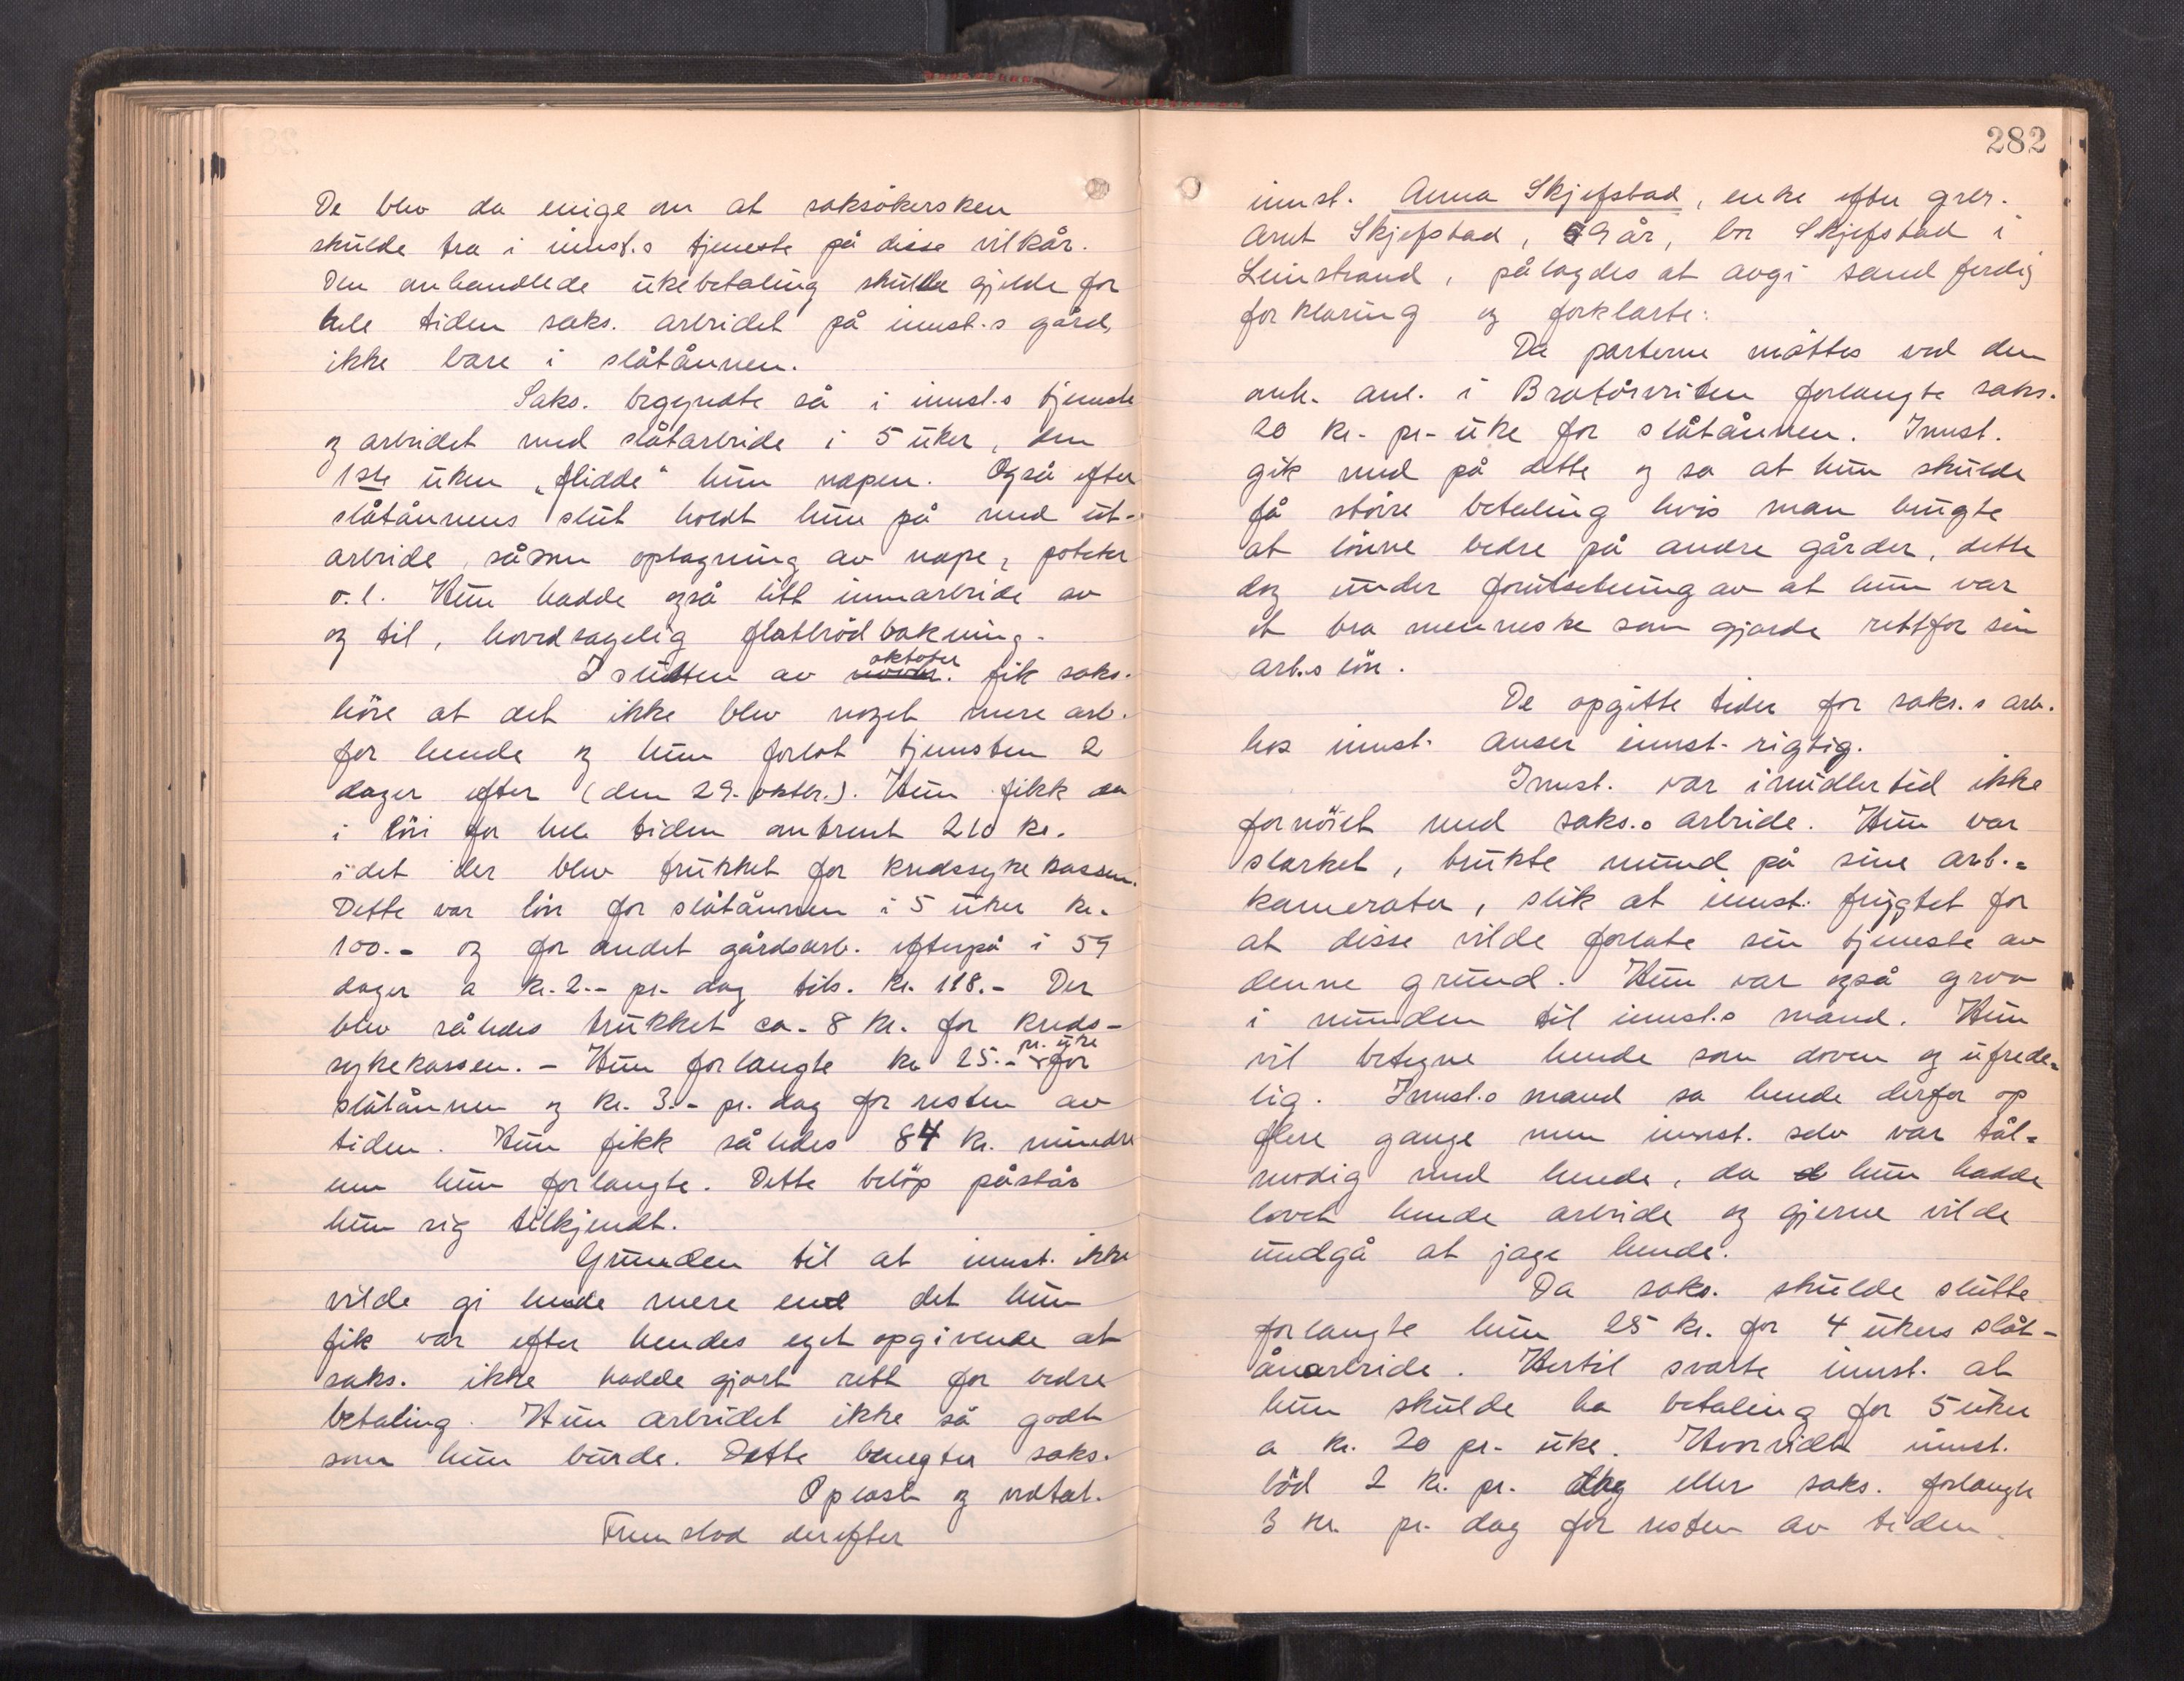 De blev da enige om at saksökersken
skulde tra i innst.s tjeneste på disse vilkår.
Den anhandlede ukebetaling skulde gjelde for
hele tiden saks. arbeidet på innst.s gård,
ikke bare i slåtånnen.
Saks. begyndte så i innst.s tjeneste
og arbeidet med slåtarbeide i 5 uker, den
1ste uken „flidde" hun næpen. Også efter
slåtånnens slut holdt hun på med ut-
arbeide, såsom optagning av næpe, poteter
o.l. Hun hadde også litt innarbeide av
og til, hovedsagelig flatbrödbakning.
I slutten av novbr. oktober fik saks.
höre at det ikke blev noget mere arb.
for hende og hun forlot tjenesten 2
dager efter (den 29. oktbr.). Hun fikk da
i lön for hele tiden omtrent 210 kr.
idet der blev trukket for kredssykekassen.
Dette var lön for slåtånnen i 5 uker kr.
100.- og for andet gårdsarb. efterpå i 59
dager a kr. 2.- pr. dag tils. kr. 118.- Der
blev således trukket ca. 8 kr. for kreds-
sykekassen. - Hun forlangte kr. 25.- pr. uke for
slåtånnen og kr. 3.- pr. dag for resten av
tiden. Hun fikk således 84 kr. mindre
enn hun forlangte. Dette belöp påstår
hun sig tilkjendt.
Grunden til at innst. ikke
vilde gi hende mere end det hun
fik var efter hendes eget opgivende at
saks. ikke hadde gjort rett for bedre
betaling. Hun arbeidet ikke så godt
som hun burde. Dette benegter saks.
Oplæst og vedtat.
Fremstod derefter
282
innst. Anna Skjefstad, enke efter grbr.
Arnt Skjefstad, 59 år, bor Skjefstad i
Leinstrand, pålagdes at avgi sandferdig
forklaring og forklarte:
Da parterne möttes ved den
anh. anl. i Bratörveiten forlangte saks.
20 kr. pr. uke for slåtånnen. Innst.
gik med på dette og sa at hun skulde
få större betaling hvis man brugte
at lönne bedre på andre gårder, dette
dog under forutsetning av at hun var
et bra menneske som gjorde rett for sin
arb.s lön.
De opgitte tider for saks.s arb.
hos innst. anser innst. rigtig.
Innst. var imidlertid ikke
fornöiet med saks.s arbeide. Hun var
slarket, brukte mund på sine arb.-
kamerater, slik at innst. frygtet for
at disse vilde forlate sin tjeneste av
denne grund. Hun var også grov
i munden til innst.s mand. Hun
vil betegne hende som doven og ufrede-
lig. Innst.s mand sa hende derfor op
flere gange men innst. selv var tål-
modig med hende, da hun hadde
lovet hende arbeide og gjerne vilde
undgå at jage hende.
Da saks. skulde slutte
forlangte hun 25 kr. for 4 ukers slåt-
ånarbeide. Hertil svarte innst. at
hun skulde ha betaling for 5 uker
a kr. 20 pr. uke. Hvorvidt innst.
böd 2 kr. pr. dag eller saks. forlangte
3 kr. pr. dag for resten av tiden